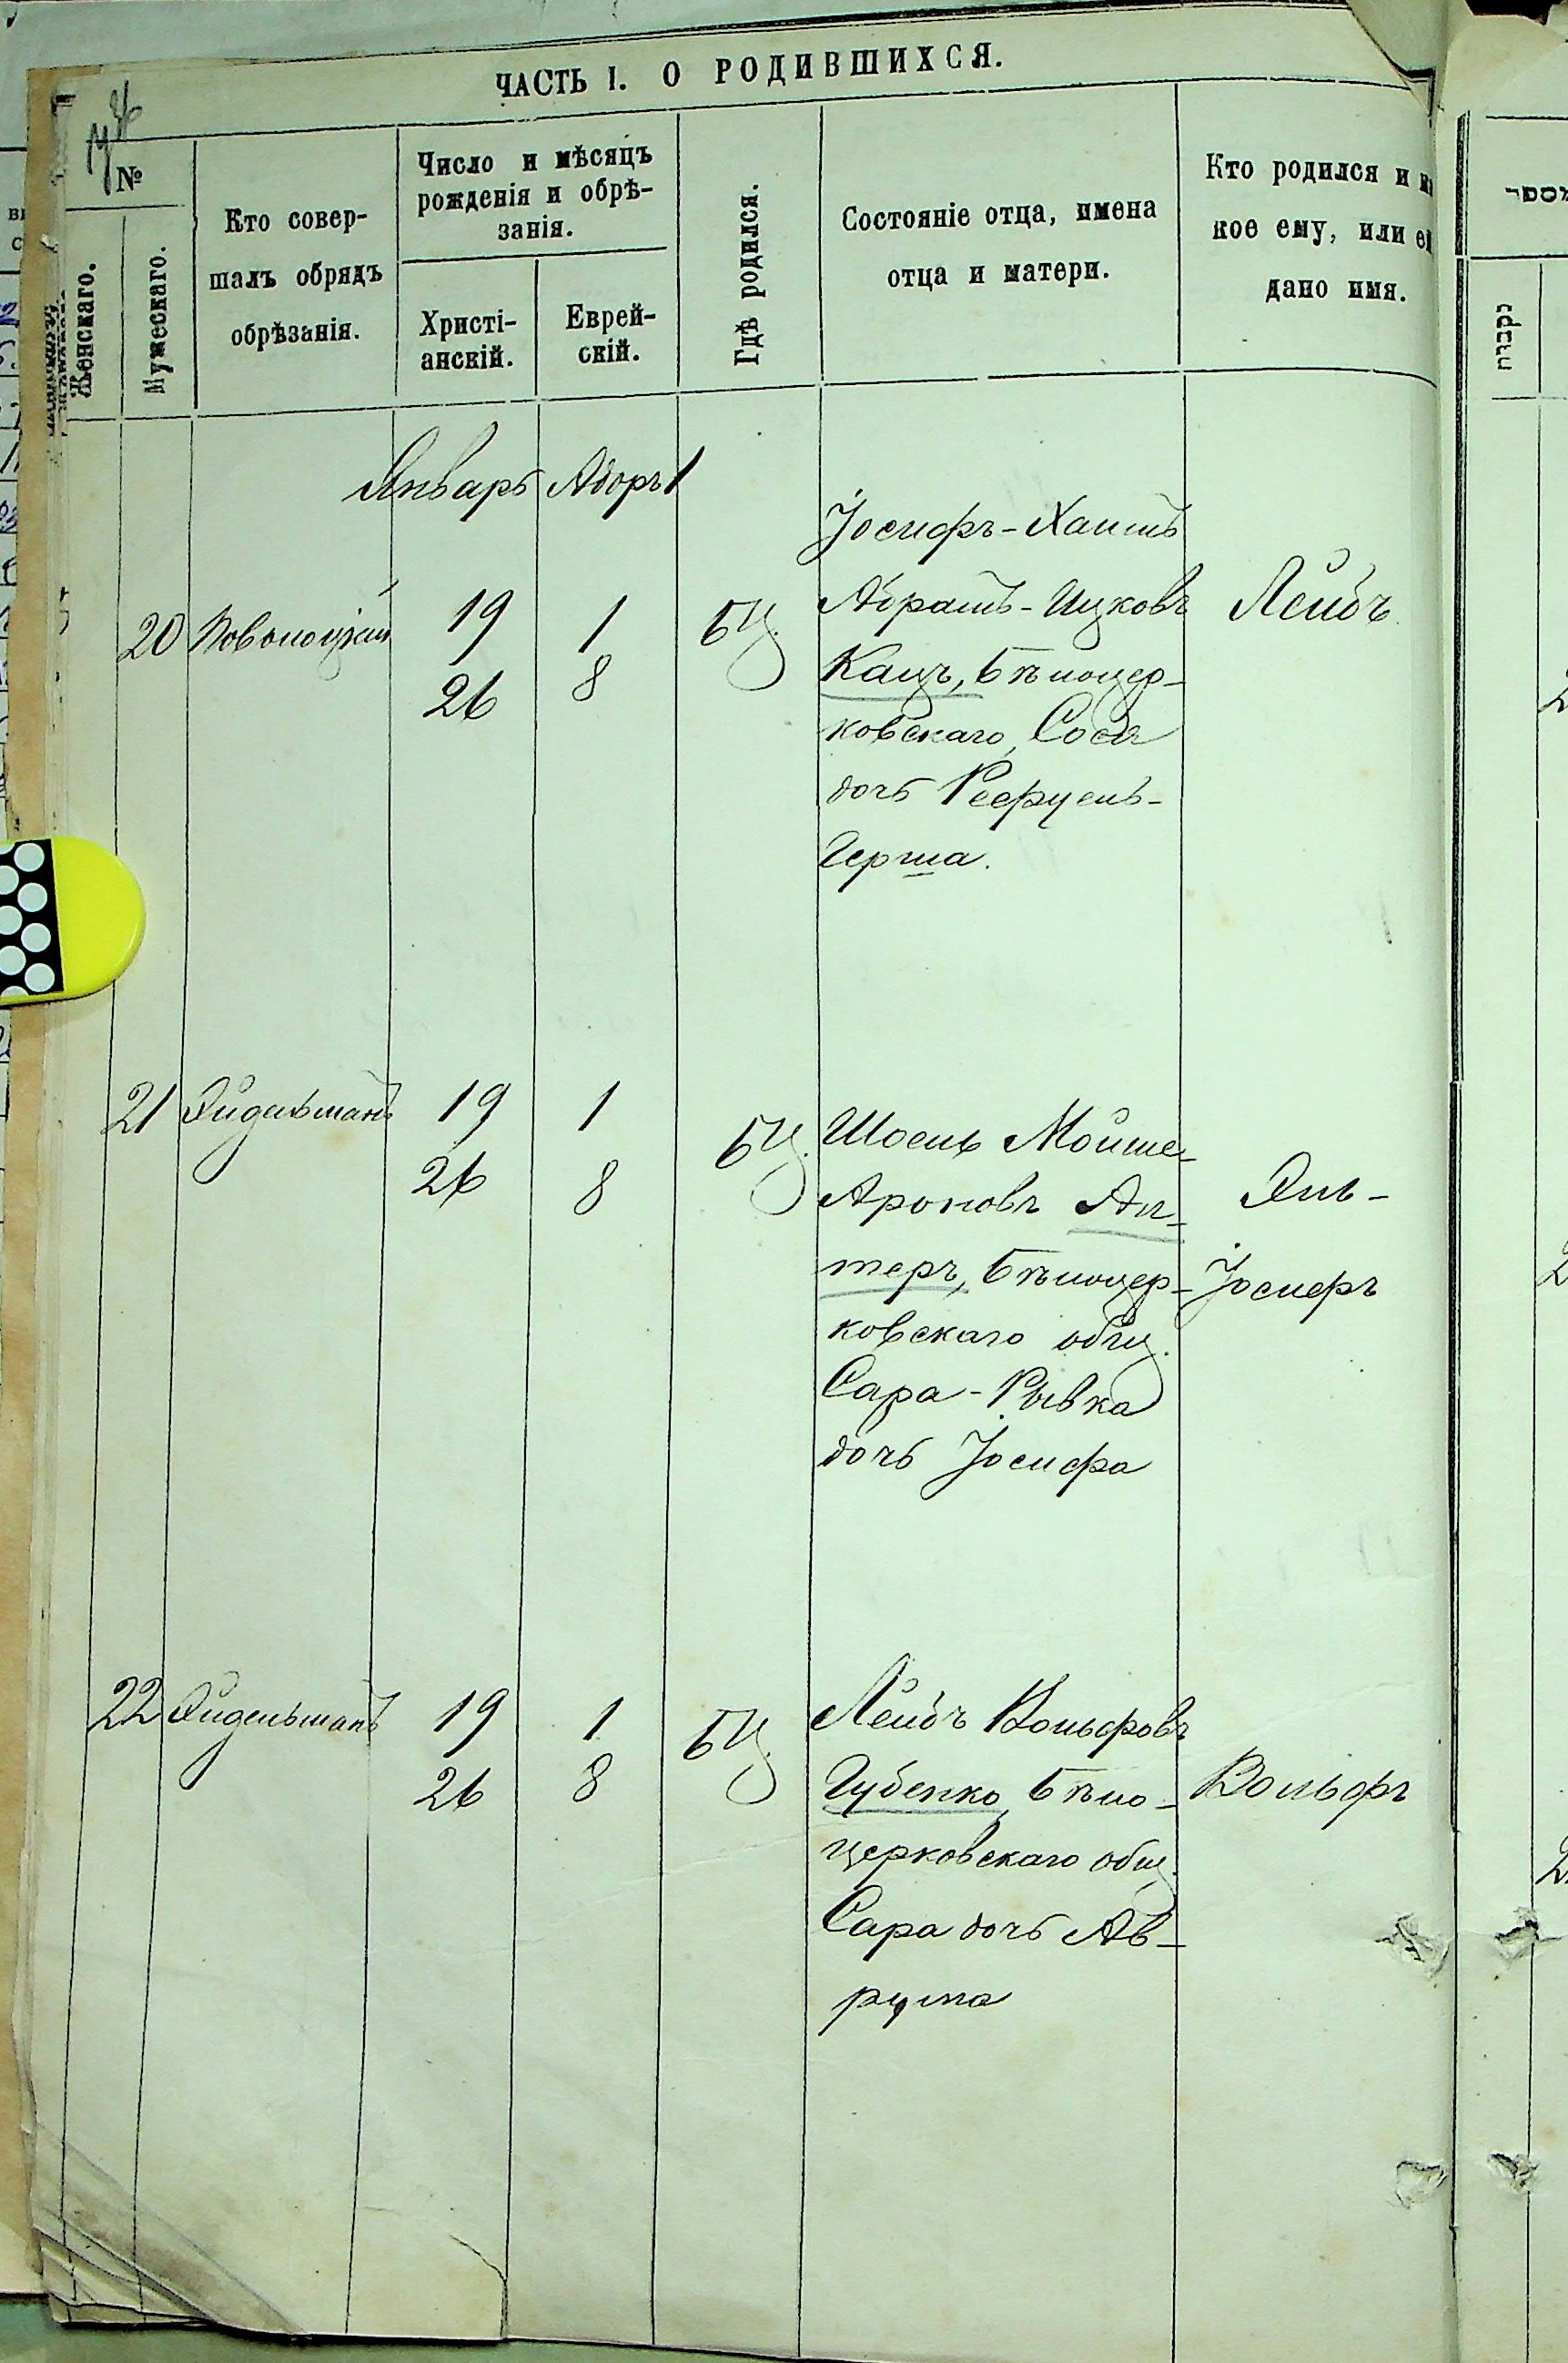 ЧАСТЬ I. О РОДИВШИХСЯ.
№
Женскаго.
Мужескаго.
Кто совер-
шалъ обрядъ
обрѣзанія.
Число и мѣсяцъ
рожденія и обрѣ-
занія.
Христі-
анскій.
Еврей-
скій.
Гдѣ родился.
Состояніе отца, имена
отца и матери.
Кто родился и
кое ему, или
дано имя.
Январь Адоръ 1
20 19 1 БЦ.
26 8
Іосифъ-Хаимъ
Абрамъ-Ицковъ
Кацъ, Бѣлоцер-
ковскаго, Сося
дочь
Герша.
Лейбъ
21 Эйдельманъ 19 1 БЦ.
26 8
Шоель Мойше-
Ароновъ Ал-
теръ, Бѣлоцер-
ковскаго общ.
Сара-Рывка
дочь Іосифа
Эль-
Іосифъ
22 Эйдельманъ 19 1 БЦ.
26 8
Лейбъ Вольфовъ
Губенко, Бѣло-
церковскаго общ.
Сара дочь Ав-
рума
Вольфъ
מספר
נקבות